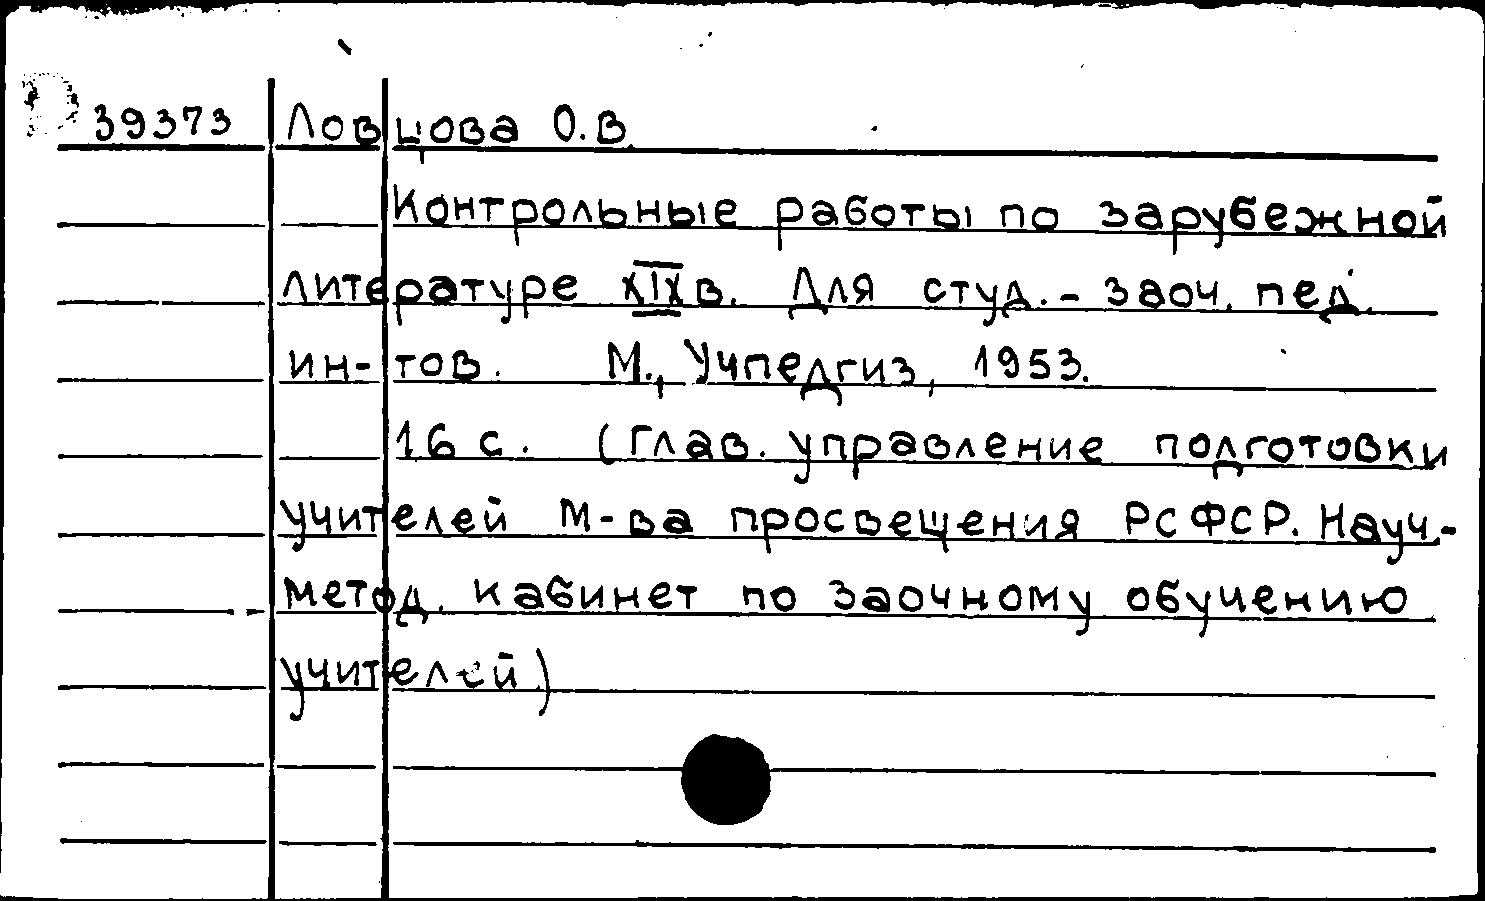 39373 Ловцова О.В.
Контрольные работы по зарубежной
литературе XIX в. Для студ.-заоч. пед.
ин-тов. М., Учпедгиз, 1953.
16 с. (Глав. управление подготовки
учителей М-ва просвещения РСФСР. Науч.-
метод. кабинет по заочному обучению
учителей)